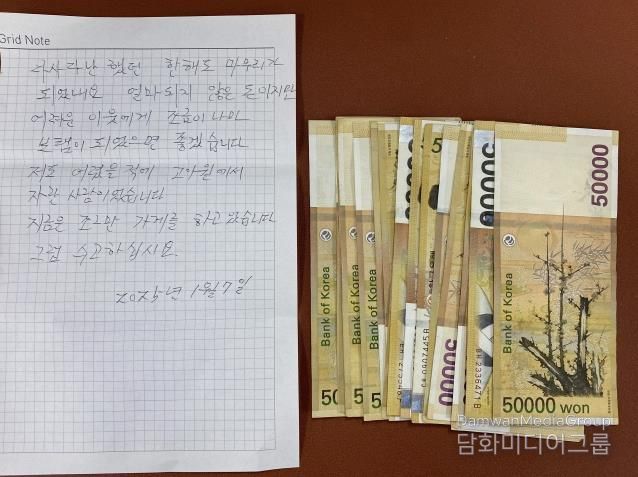 Grid Note
다사다난 했던 한해도 마무리가
되었네요 얼마되지 않은 돈이지만
어려운 이웃에게 조금이 나마
보탬이 되었으면 좋겠습니다
저도 어렸을적에 고아원에서
자란 사람이었습니다
지금은 조그만 가게를 하고 있습니다
그럼 수고하십시요.
2025년 1월 7일
50000
Bank of Korea
Bank of Korea
Bank of Korea
Bank of Korea
50000
50000
50000 won
BamwanMediaGroup
담화미디어그룹